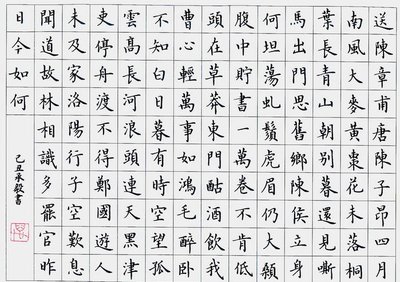 送陳章甫唐陳子昂四月
南風大麥黃棗花未落桐
葉長青山朝別暮還見嘶
馬出門思舊鄉陳侯立身
何坦蕩虬鬚虎眉仍大顙
腹中貯書一萬卷不肯低
頭在草莽東門酤酒飲我
曹心輕萬事如鴻毛醉臥
不知白日暮有時空望孤
雲高長河浪頭連天黑津
吏停舟渡不得鄭國遊人
未及家洛陽行子空歎息
聞道故林相識多罷官昨
日今如何
己丑承毅書